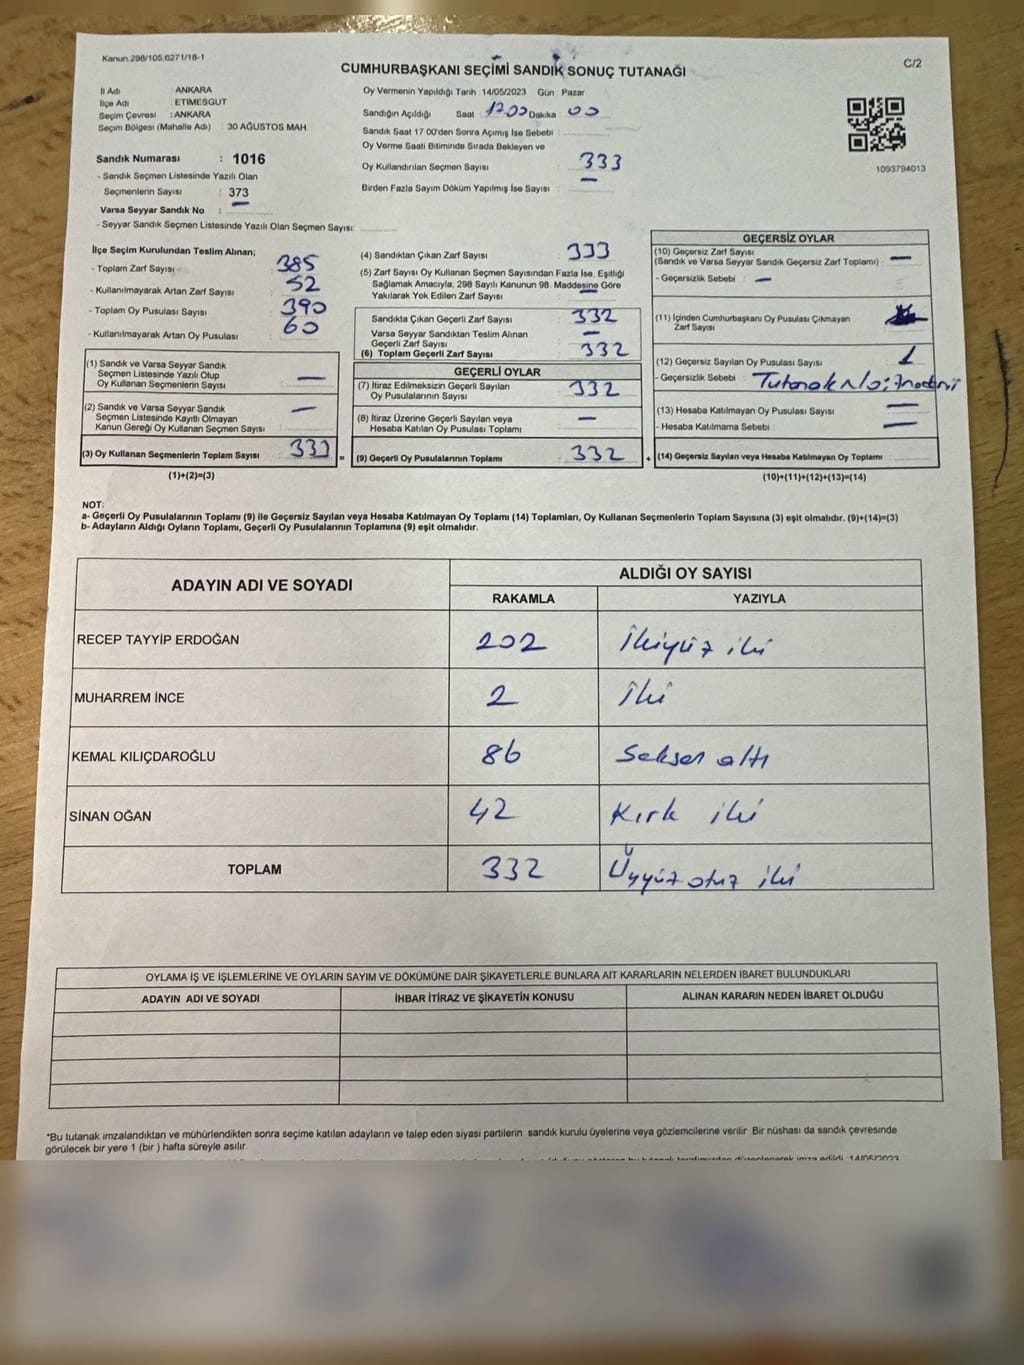 Kanun.298/105,6271/18-1
C/2
CUMHURBAŞKANI SEÇİMİ SANDIK SONUÇ TUTANAĞI
İl Adı : ANKARA
İlçe Adı : ETIMESGUT
Seçim Çevresi : ANKARA
Seçim Bölgesi (Mahalle Adı) : 30 AĞUSTOS MAH
Sandık Numarası : 1016
- Sandık Seçmen Listesinde Yazılı Olan
Seçmenlerin Sayısı : 373
Varsa Seyyar Sandık No :
- Seyyar Sandık Seçmen Listesinde Yazılı Olan Seçmen Sayısı:
Oy Vermenin Yapıldığı Tarih :14/05/2023 Gün Pazar
Sandığın Açıldığı Saat : 17.00 Dakika 00
Sandık Saat 17:00'den Sonra Açımış İse Sebebi :
Oy Verme Saati Bitiminde Sırada Bekleyen ve
Oy Kullandırılan Seçmen Sayısı : 333
Birden Fazla Sayım Döküm Yapılmış İse Sayısı : —
1093794013
İlçe Seçim Kurulundan Teslim Alınan;
- Toplam Zarf Sayısı 385
- Kullanılmayarak Artan Zarf Sayısı 52
- Toplam Oy Pusulası Sayısı 390
- Kullanılmayarak Artan Oy Pusulası 60
(1) Sandık ve Varsa Seyyar Sandık
Seçmen Listesinde Yazılı Olup
Oy Kullanan Seçmenlerin Sayısı —
(2) Sandık ve Varsa Seyyar Sandık
Seçmen Listesinde Kayıtlı Olmayan
Kanun Gereği Oy Kullanan Seçmen Sayısı —
(3) Oy Kullanan Seçmenlerin Toplam Sayısı 333 =
(1)+(2)=(3)
(4) Sandıktan Çıkan Zarf Sayısı 333
(5) Zarf Sayısı Oy Kullanan Seçmen Sayısından Fazla İse, Eşitliği
Sağlamak Amacıyla, 298 Sayılı Kanunun 98. Maddesine Göre
Yakılarak Yok Edilen Zarf Sayısı —
Sandıkta Çıkan Geçerli Zarf Sayısı 332
Varsa Seyyar Sandıktan Teslim Alınan
Geçerli Zarf Sayısı —
(6) Toplam Geçerli Zarf Sayısı 332
GEÇERLİ OYLAR
(7) İtiraz Edilmeksizin Geçerli Sayılan
Oy Pusulalarının Sayısı 332
(8) İtiraz Üzerine Geçerli Sayılan veya
Hesaba Katılan Oy Pusulası Toplamı —
(9) Geçerli Oy Pusulalarının Toplamı 332 +
GEÇERSİZ OYLAR
(10) Geçersiz Zarf Sayısı
(Sandık ve Varsa Seyyar Sandık Geçersiz Zarf Toplamı) : —
- Geçersizlik Sebebi : —
(11) İçinden Cumhurbaşkanı Oy Pusulası Çıkmayan
Zarf Sayısı
(12) Geçersiz Sayılan Oy Pusulası Sayısı 1
- Geçersizlik Sebebi :
(13) Hesaba Katılmayan Oy Pusulası Sayısı : —
- Hesaba Katılmama Sebebi : —
(14) Geçersiz Sayılan veya Hesaba Katılmayan Oy Toplamı
(10)+(11)+(12)+(13)=(14)
NOT:
a- Geçerli Oy Pusulalarının Toplamı (9) ile Geçersiz Sayılan veya Hesaba Katılmayan Oy Toplamı (14) Toplamları, Oy Kullanan Seçmenlerin Toplam Sayısına (3) eşit olmalıdır. (9)+(14)=(3)
b- Adayların Aldığı Oyların Toplamı, Geçerli Oy Pusulalarının Toplamına (9) eşit olmalıdır.
ADAYIN ADI VE SOYADI
ALDIĞI OY SAYISI
RAKAMLA YAZIYLA
RECEP TAYYİP ERDOĞAN 202 İkiyüz iki
MUHARREM İNCE 2 İki
KEMAL KILIÇDAROĞLU 86 Seksen altı
SİNAN OĞAN 42 Kırk iki
TOPLAM 332 Üçyüz otuz iki
OYLAMA İŞ VE İŞLEMLERİNE VE OYLARIN SAYIM VE DÖKÜMÜNE DAİR ŞİKAYETLERLE BUNLARA AİT KARARLARIN NELERDEN İBARET BULUNDUKLARI
ADAYIN ADI VE SOYADI İHBAR İTİRAZ VE ŞİKAYETİN KONUSU ALINAN KARARIN NEDEN İBARET OLDUĞU
*Bu tutanak imzalandıktan ve mühürlendikten sonra seçime katılan adayların ve talep eden siyasi partilerin sandık kurulu üyelerine veya gözlemcilerine verilir. Bir nüshası da sandık çevresinde
görülecek bir yere 1 (bir ) hafta süreyle asılır.